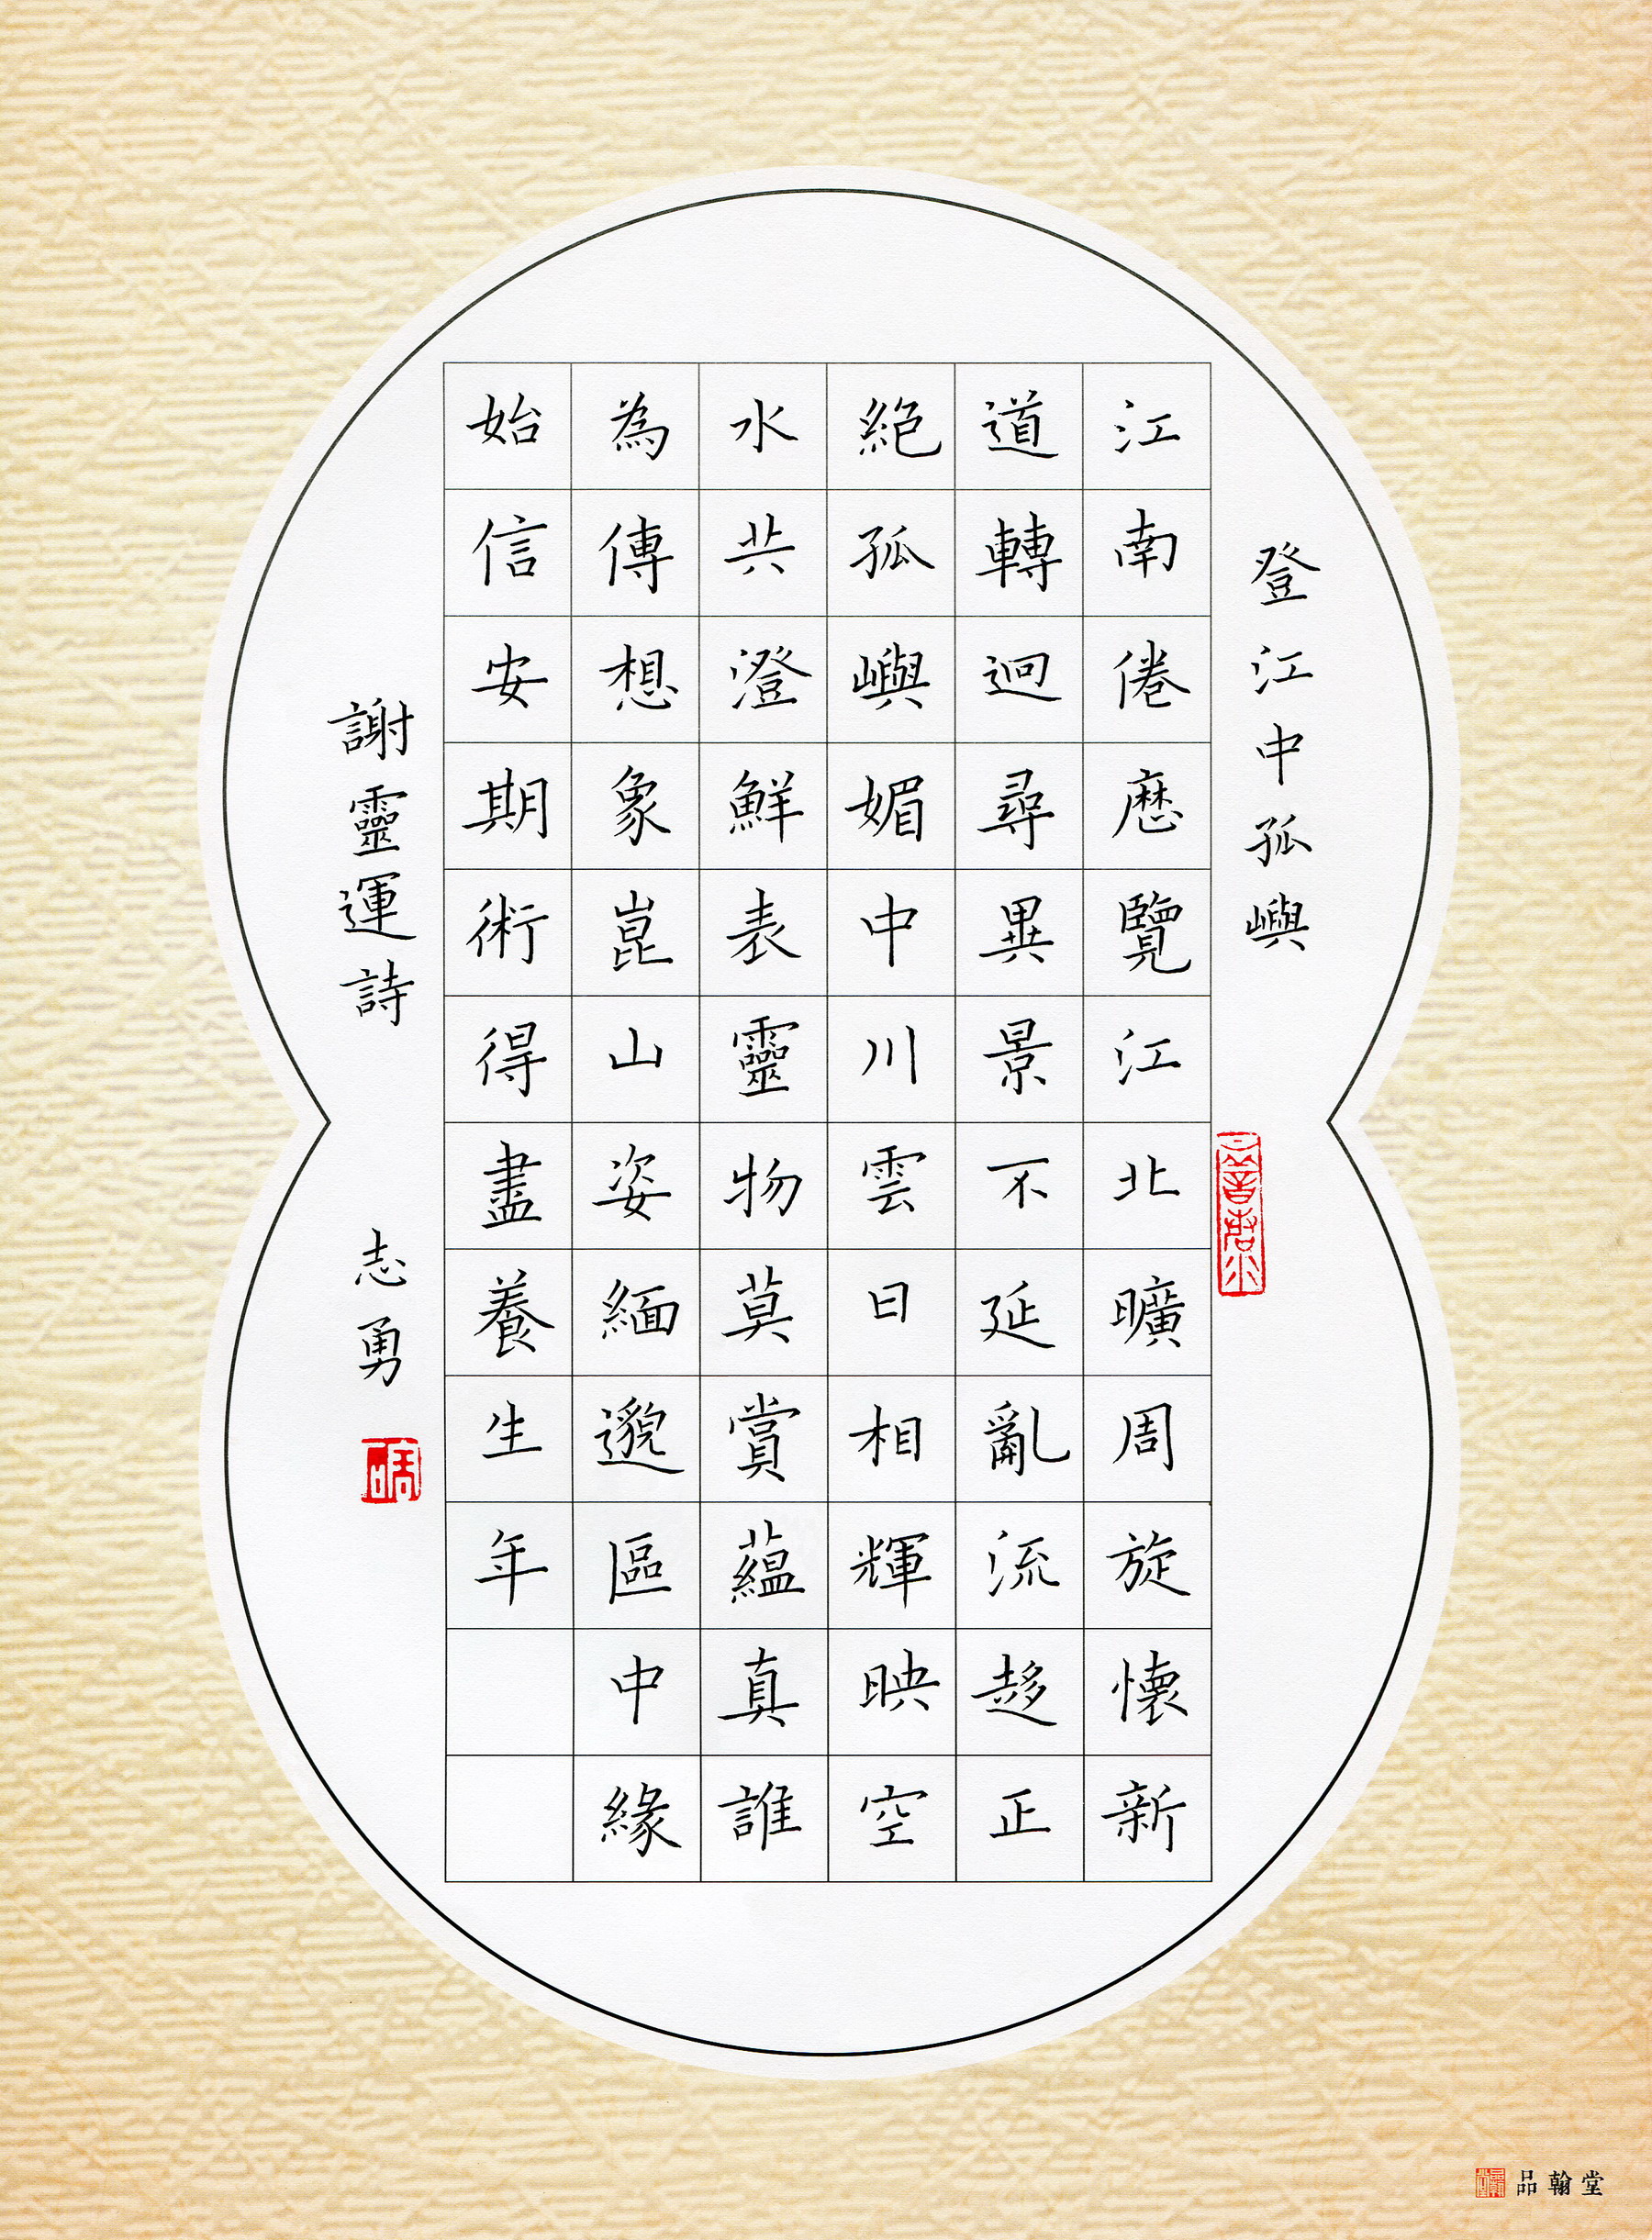 登江中孤嶼
江南倦歷覽江北曠周旋懷新
道轉迥尋異景不延亂流趍正
絕孤嶼媚中川雲日相輝映空
水共澄鮮表靈物莫賞蘊真誰
為傳想象崑山姿緬邈區中緣
始信安期術得盡養生年
謝靈運詩
志勇
品翰堂